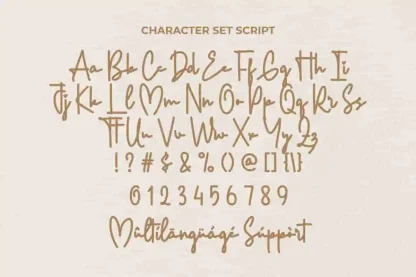 CHARACTER SET SCRIPT
Aa Bb Cc Dd Ee Ff Gg Hh Ii
Jj Kk Ll Mm Nn Oo Pp Qq Rr Ss
Tt Uu Vv Ww Xx Yy Zz
! ? # $ & % ( ) @ [ ] { | \ }
0 1 2 3 4 5 6 7 8 9
Mûltilängüágé Súppòrt